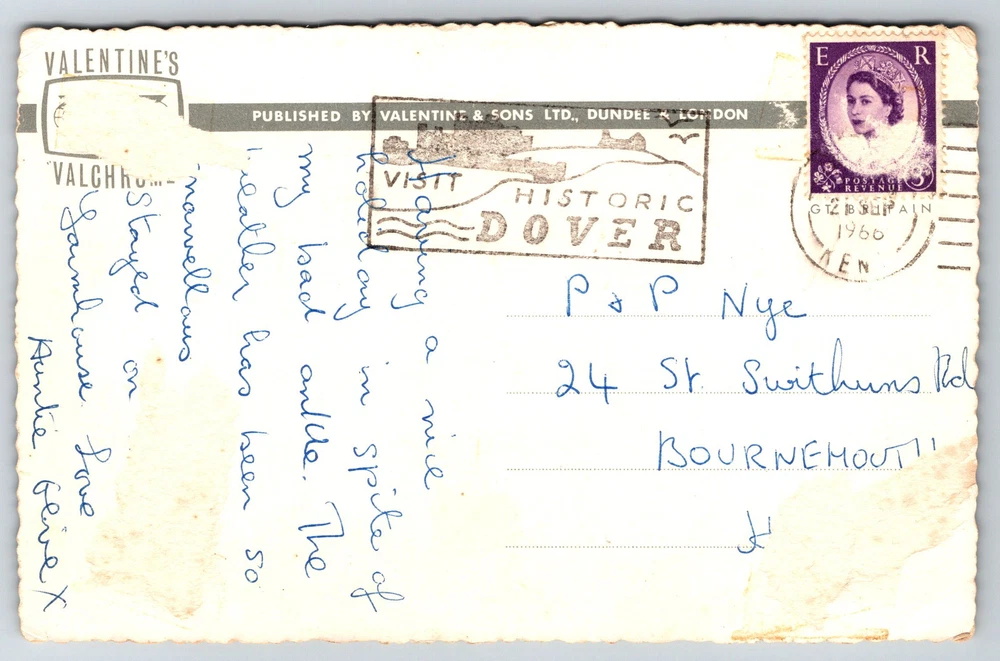 VALENTINE'S
VALCHROME
PUBLISHED BY VALENTINE & SONS LTD., DUNDEE & LONDON
VISIT
HISTORIC
DOVER
E R
POSTAGE
REVENUE
3D
GT. BRITAIN
1966
KEN
Having a nice
holiday in spite of
my bad ankle. The
weather has been so
marvellous
Stayed on
Love
Auntie Olive X
P & P Nye
24 St. Swithuns Rd
BOURNEMOUTH